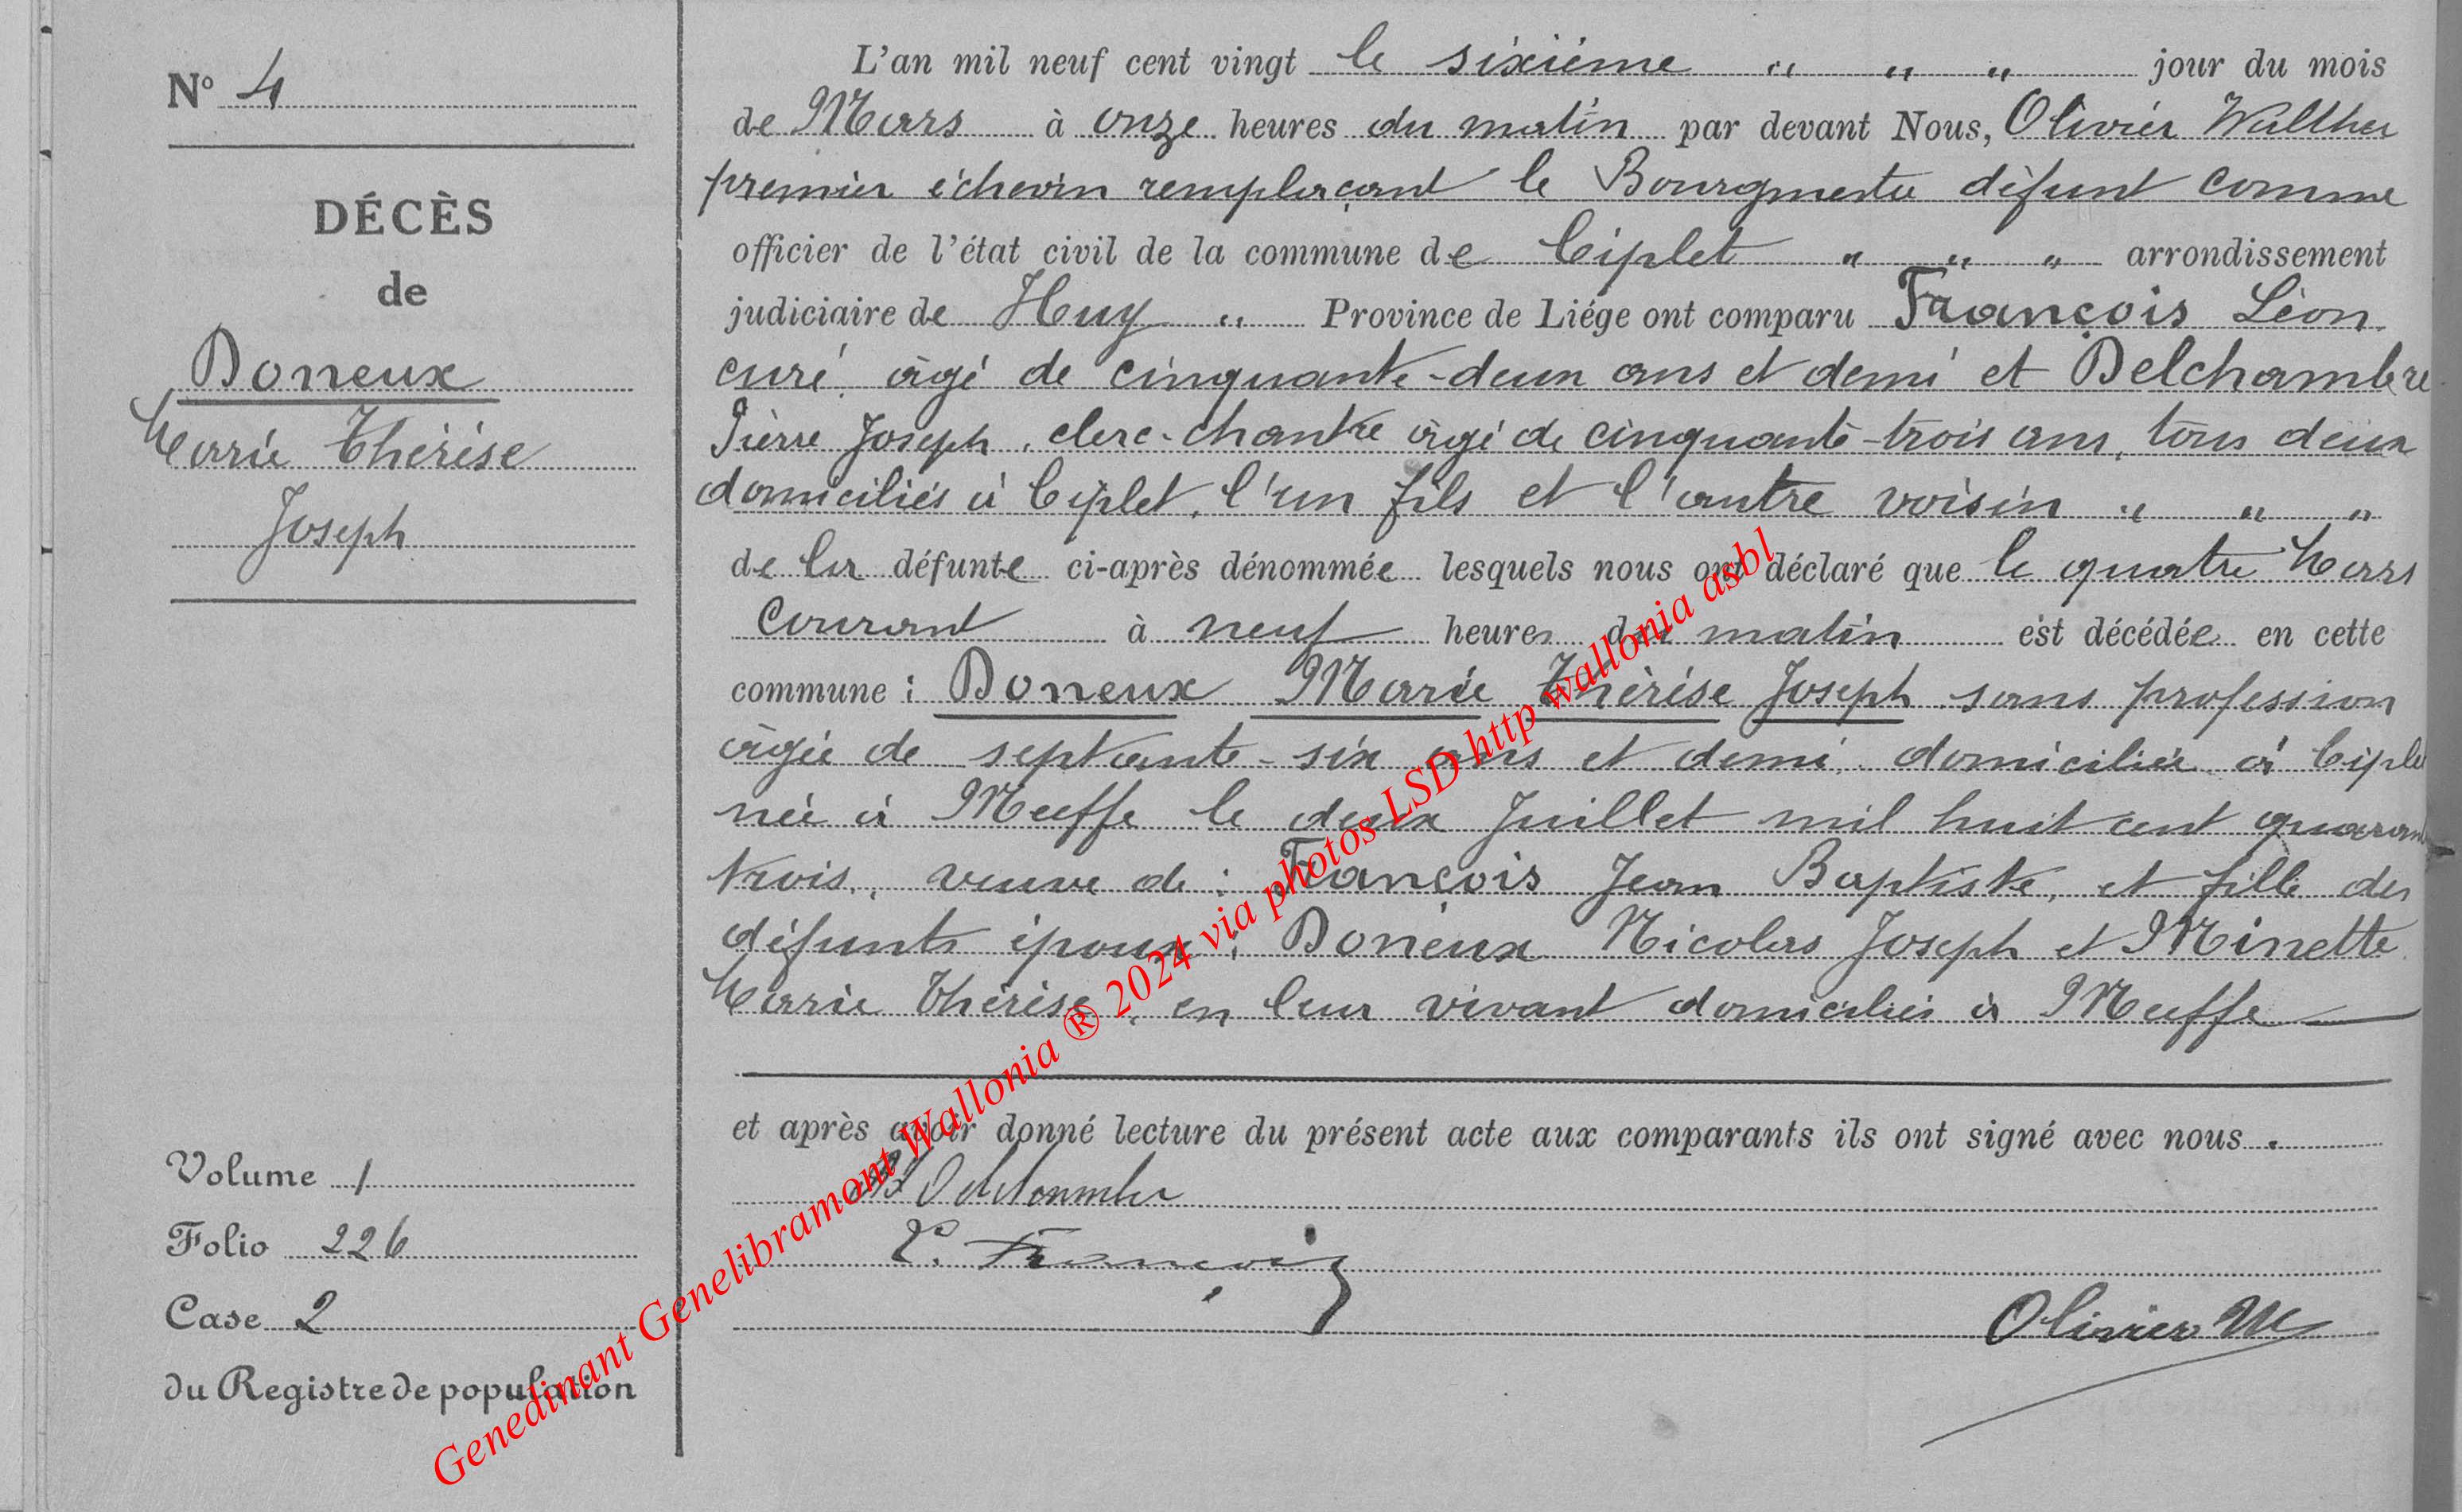 N° 4
DÉCÈS
de
Doneux
Marie Thérèse
Joseph
Volume 1
Folio 226
Case 2
du Registre de population
L'an mil neuf cent vingt le sixième " " " jour du mois
de Mars à onze heures du matin par devant Nous, Olivier Walther
premier échevin remplaçant le Bourgmestre défunt comme
officier de l'état civil de la commune de Ciplet " " " arrondissement
judiciaire de Huy " Province de Liége ont comparu François Léon
curé, âgé de cinquante-deux ans et demi et Delchambre
Pierre Joseph, clerc-chantre âgé de cinquante-trois ans, tous deux
domiciliés à Ciplet, l'un fils et l'autre voisin " " "
de la défunte ci-après dénommée lesquels nous ont déclaré que le quatre Mars
courant à neuf heures du matin est décédée en cette
commune : Doneux Marie Thérèse Joseph sans profession
âgée de septante-six ans et demi, domiciliée à Ciplet
née à Meeffe le deux Juillet mil huit cent quarante
trois, veuve de : François Jean Baptiste, et fille des
défunts époux : Doneux Nicolas Joseph et Minette
Marie Thérèse, en leur vivant domiciliés à Meeffe
et après avoir donné lecture du présent acte aux comparants ils ont signé avec nous.
Delchambre
L. François
Olivier W
Genedinant Genelibramont Wallonia ® 2024 via photos LSD http wallonia asbl